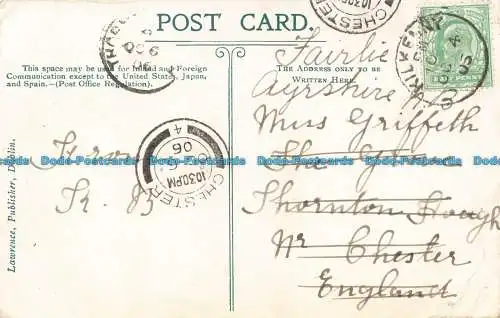 POST CARD.
This space may be used for Inland and Foreign
Communication except to the United States, Japan,
and Spain.—(Post Office Regulation).
THE ADDRESS ONLY TO BE
WRITTEN HERE.
Fairlie
Ayrshire
Miss Griffeth
The
Thornton Hough
Nr Chester
England
From
CHESTER
10 30 PM
06
4
CHESTER
10 30 PM
KILKENNY
Lawrence, Publisher, Dublin.
Dodo-Postcards Dodo-Postcards Dodo-Postcards Dodo-Postcards